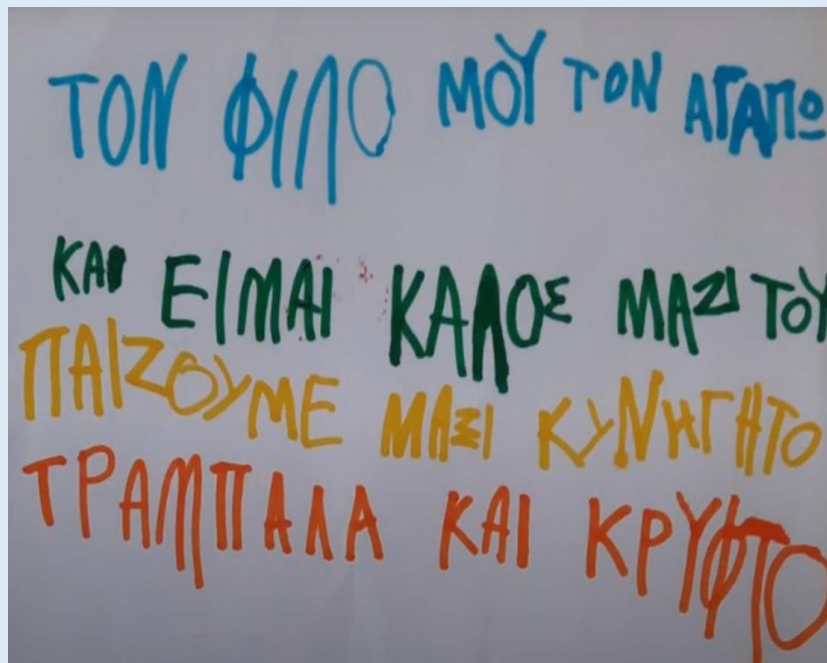 ΤΟΝ ΦΙΛΟ ΜΟΥ ΤΟΝ ΑΓΑΠΩ
ΚΑΙ ΕΙΜΑΙ ΚΑΛΟΣ ΜΑΖΙ ΤΟΥ
ΠΑΙΖΟΥΜΕ ΜΑΞΙ ΚΥΝΗΓΗΤΟ
ΤΡΑΜΠΑΛΑ ΚΑΙ ΚΡΥΦΤΟ